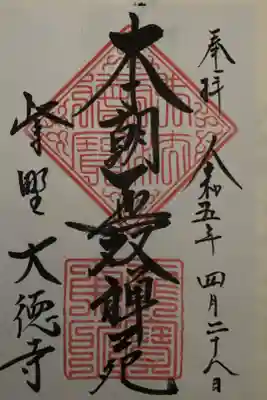 奉拝 令和五年四月二十八日
本朝無双禅苑
紫野 大徳寺